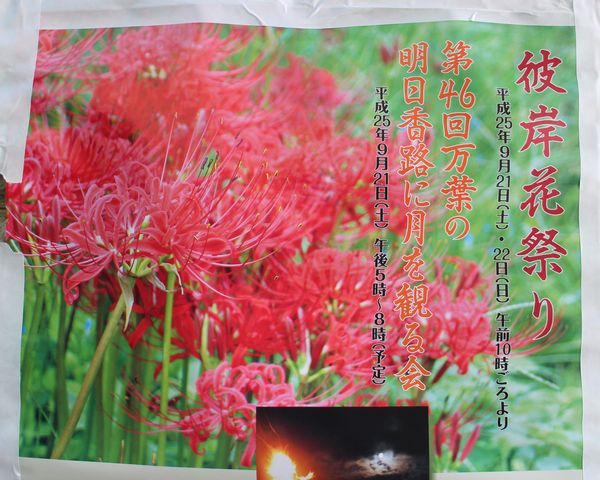 彼岸花祭り
平成25年9月21日(土)・22日(日) 午前10時ごろより
第46回万葉の
明日香路に月を観る会
平成25年9月21日(土) 午後5時～8時(予定)